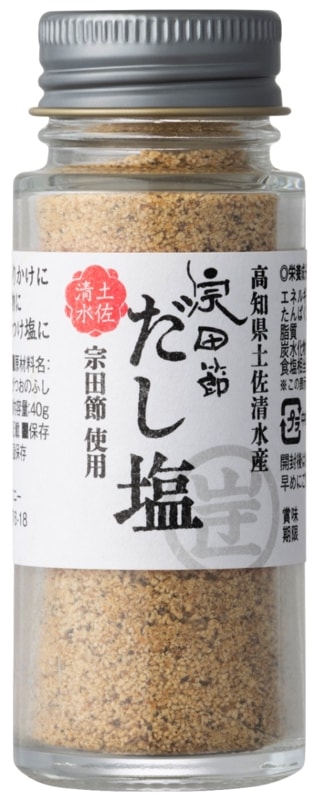 高知県土佐清水産
宗田節
だし塩
土佐
清水
宗田節使用
りかけに
に
つけ塩に
原材料名:
つおのふし
容量:40g
保存
保存
ニー
-18
◎栄養成
エネルギ
たんぱ
脂質
炭水化
食塩相
※この表
プラ
開封後
早めにご
賞味
期限